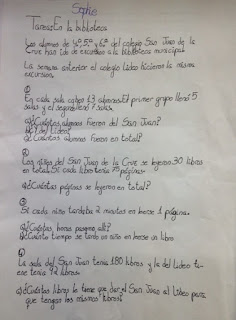 Sophie
Tarea: En la biblioteca
Los alumnos de 4º, 5º y 6º del colegio San Juan de la
Cruz han ido de excursión a la biblioteca municipal
La semana anterior el colegio Lideo hicieron la misma
excursión.
①
En cada sala caben 13 alumnos. El primer grupo llenó 5
salas y el segundo llenó 7 salas.
a) ¿Cuántos alumnos fueron del San Juan?
b) ¿Y del Lideo?
c) ¿Cuántos alumnos fueron en total?
②
Los niños del San Juan de la Cruz se leyeron 30 libros
en total. Si cada libro tenía 75 páginas:
¿Cuántas páginas se leyeron en total?
③
Si cada niño tardaba 2 minutos en leerse 1 página.
a) ¿Cuántas horas pasaron allí?
b) ¿Cuánto tiempo se tardó un niño en leerse un libro
④
La sala del San Juan tenía 180 libros y la del Lideo tu
tenía 92 libros.
a) ¿Cuántos libros le tiene que dar el San Juan al Lideo para
que tengan los mismos libros?